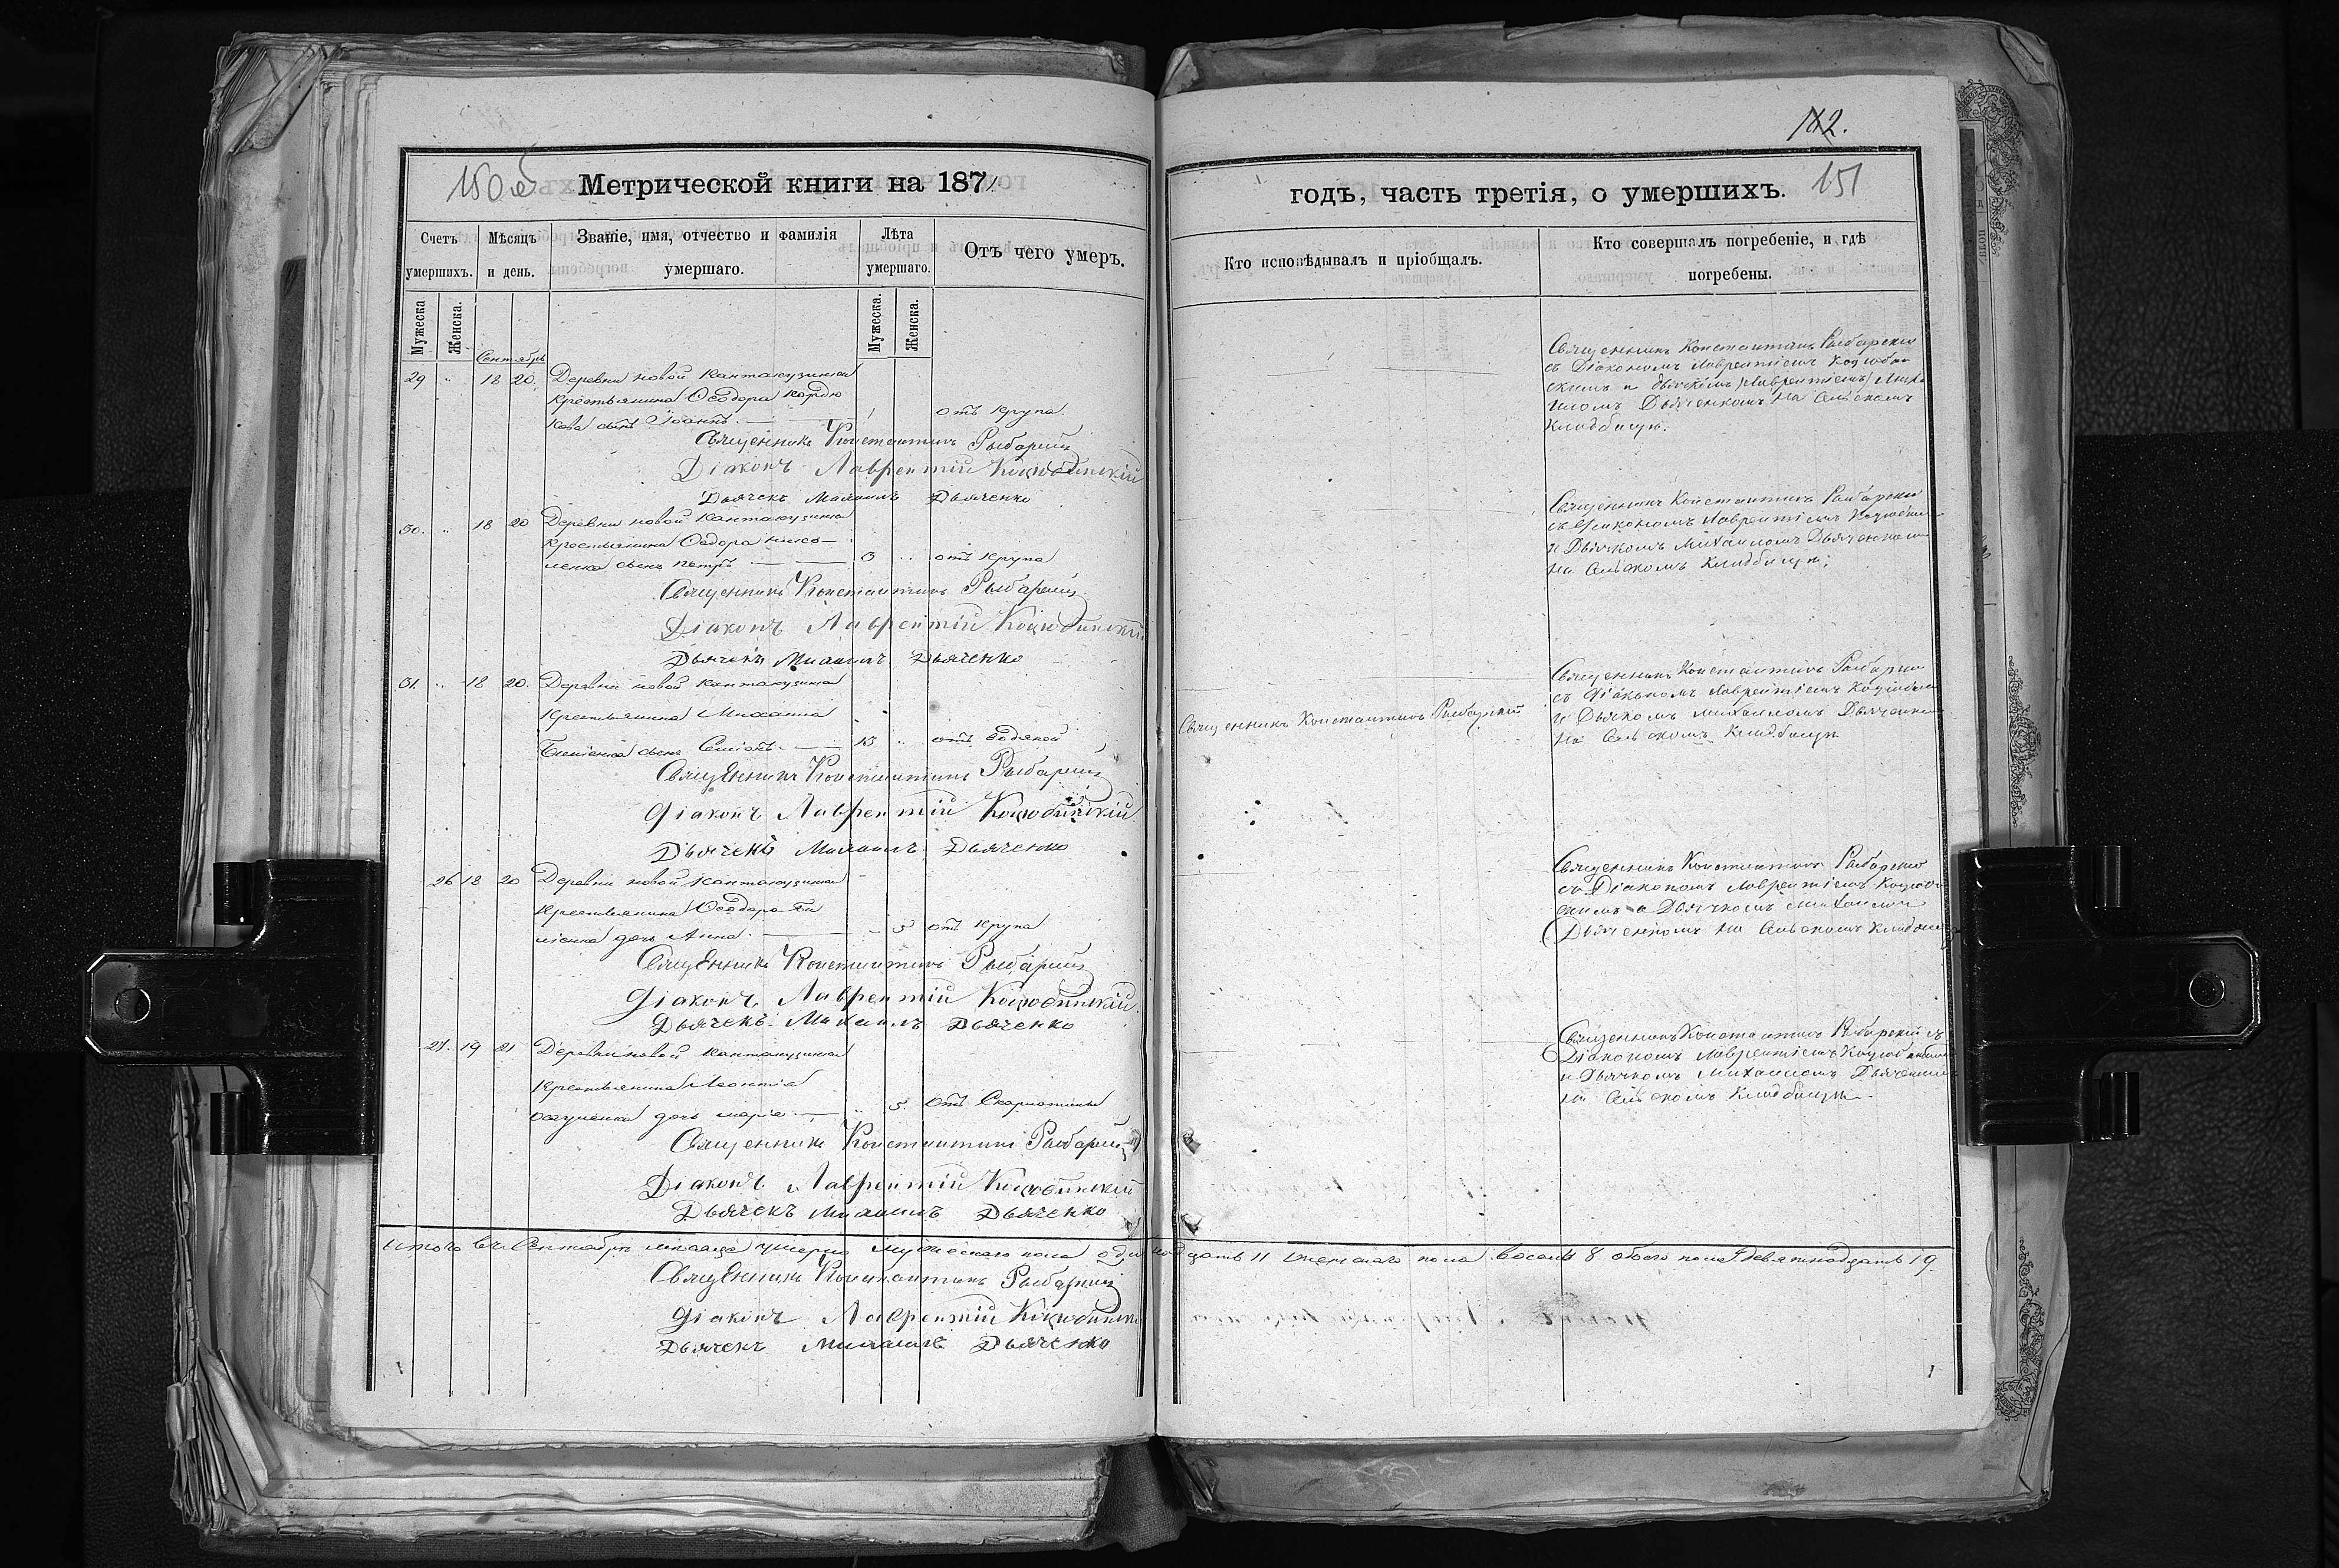 150 об
Метрической книги на 1871
Счетъ умершихъ.
Мѣсяцъ и день.
Званіе, имя, отчество и фамилія умершаго.
Лѣта умершаго.
Отъ чего умеръ.
Мужеска
Женска.
Мужеска.
Женска.
Сентябрь
29 " 18 20. Деревни новой Кантакузинка
крестьянина Ѳеодора
сынъ Іоаннъ. 1 отъ крупа.
Священникъ Константинъ Рыбарскій
Діаконъ Лаврентій Коцюбинскій
Дьячекъ Михаилъ Дьяченко
30. " 18 20 Деревни новой Кантакузинка
крестьянина Ѳеодора
сынъ Петръ 3 " отъ крупа
Священникъ Константинъ Рыбарскій
Діаконъ Лаврентій Коцюбинскій
Дьячекъ Михаилъ Дьяченко
31. " 18 20. Деревни новой Кантакузинка
крестьянина Михаила
сынъ Симеонъ 13 " отъ водяной
Священникъ Константинъ Рыбарскій
Діаконъ Лаврентій Коцюбинскій
Дьячекъ Михаилъ Дьяченко
26 18 20 Деревни новой Кантакузинка
крестьянина Ѳеодора
дочь Анна. 5 отъ крупа
Священникъ Константинъ Рыбарскій
Діаконъ Лаврентій Коцюбинскій
Дьячекъ Михаилъ Дьяченко
27. 19 21 Деревни новой Кантакузинка
крестьянина Леонтія
дочь Марія 5. отъ Скарлатины
Священникъ Константинъ Рыбарскій
Діаконъ Лаврентій Коцюбинскій
Дьячекъ Михаилъ Дьяченко
Итого въ Сентябрѣ мѣсяце умерло мужескаго пола одинадцать 11 женскаго пола восемь 8 обоего пола девятнадцать 19.
Священникъ Константинъ Рыбарскій
Діаконъ Лаврентій Коцюбинскій
Дьячекъ Михаилъ Дьяченко
182.
годъ, часть третія, о умершихъ.
151
Кто исповѣдывалъ и пріобщалъ.
Кто совершалъ погребеніе, и гдѣ погребены.
Священникъ Константинъ Рыбарскій
съ Діакономъ Лаврентіемъ Коцюбин
скимъ и дьячкомъ (Лаврентіемъ) Миха
иломъ Дьяченкомъ На Сельскомъ
Кладбищѣ.
Священникъ Константинъ Рыбарскій
съ Діакономъ Лаврентіемъ
и Дьячкомъ Михаиломъ Дьяченкомъ
На Сельскомъ Кладбищѣ;
Священникъ Константинъ Рыбарскій
Священникъ Константинъ Рыбарскій
съ Діакономъ Лаврентіемъ
и Дьячкомъ Михаиломъ Дьяченком
На Сельскомъ Кладбищѣ
Священникъ Константинъ Рыбарскій
съ Діакономъ Лаврентіемъ Коцюбин
скимъ и Дьячкомъ Михаиломъ
Дьяченкомъ На Сельскомъ Кладбищѣ
Священникъ Константинъ Рыбарскій съ
Діакономъ Лаврентіемъ
и Дьячкомъ Михаиломъ Дьяченком
на Сельскомъ Кладбищѣ.